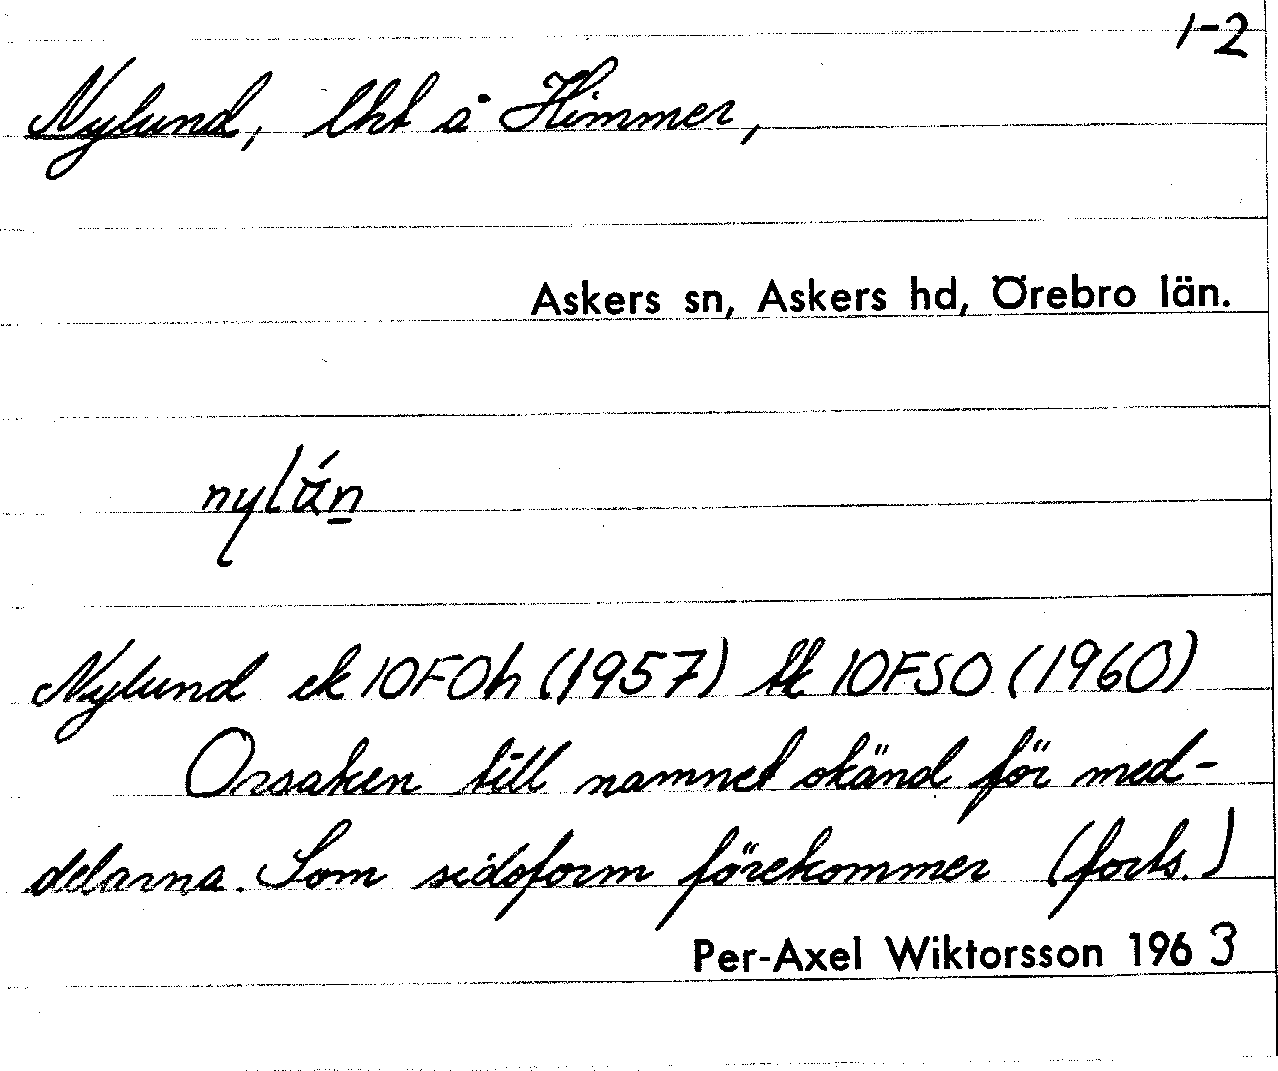 1-2
Nylund, lht å Himmer,
Askers sn, Askers hd, Örebro län.
nylún
Nylund ek 10F0h (1957) tk 10FSO (1960)
Orsaken till namnet okänd för med-
delarna. Som sidoform förekommer (forts.)
Per-Axel Wiktorsson 1963